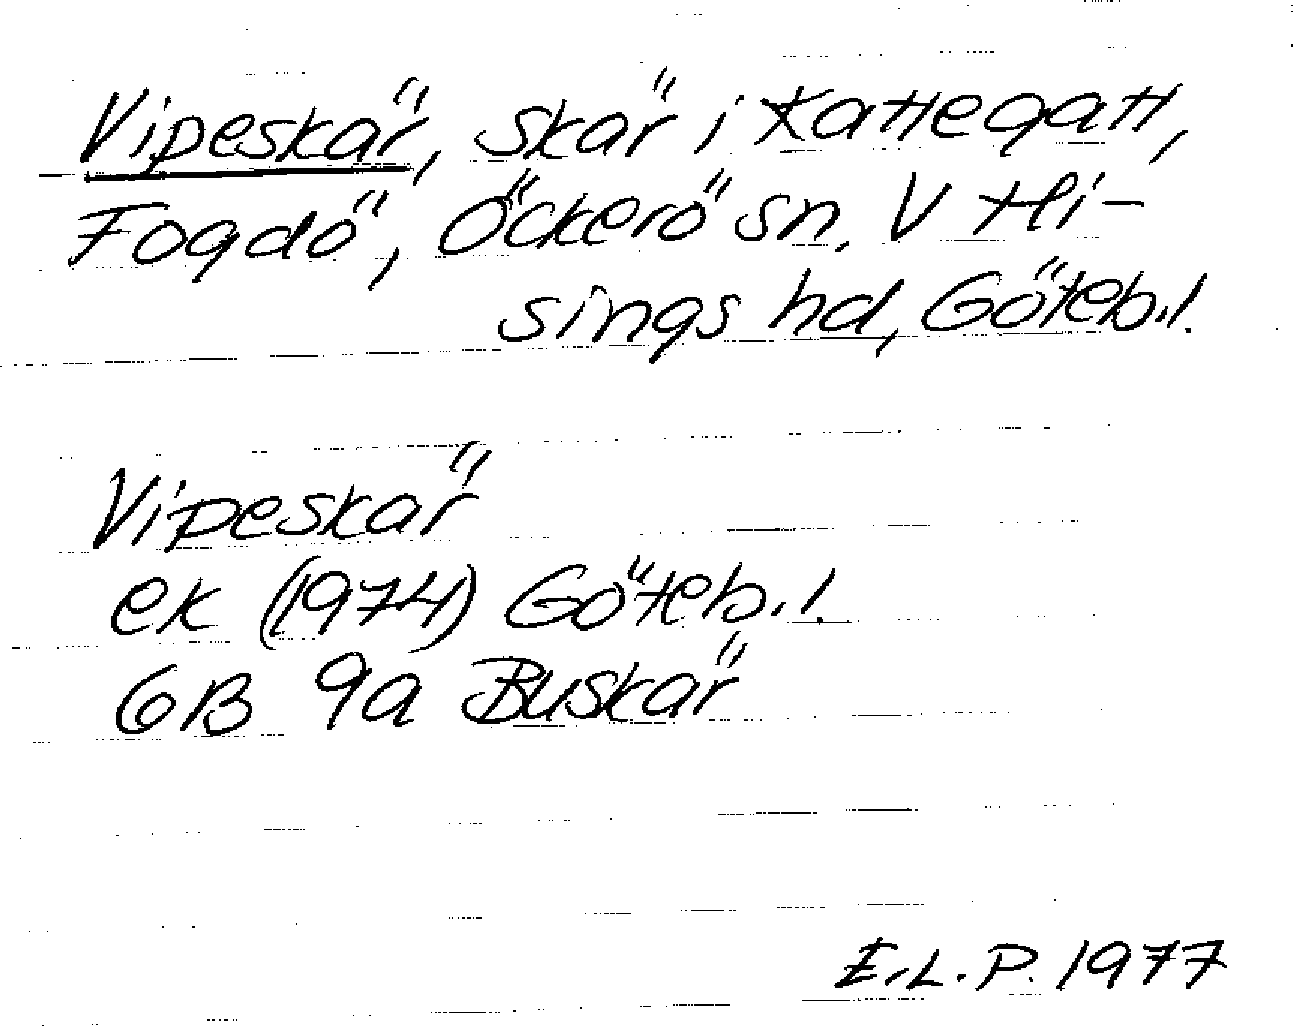 Vipeskär, skär i Kattegatt,
Fogdö, Öckerö sn, V Hi-
sings hd, Göteb.l.
Vipeskär
ek (1974) Göteb.l.
6B 9a Buskär
E.L.P. 1977